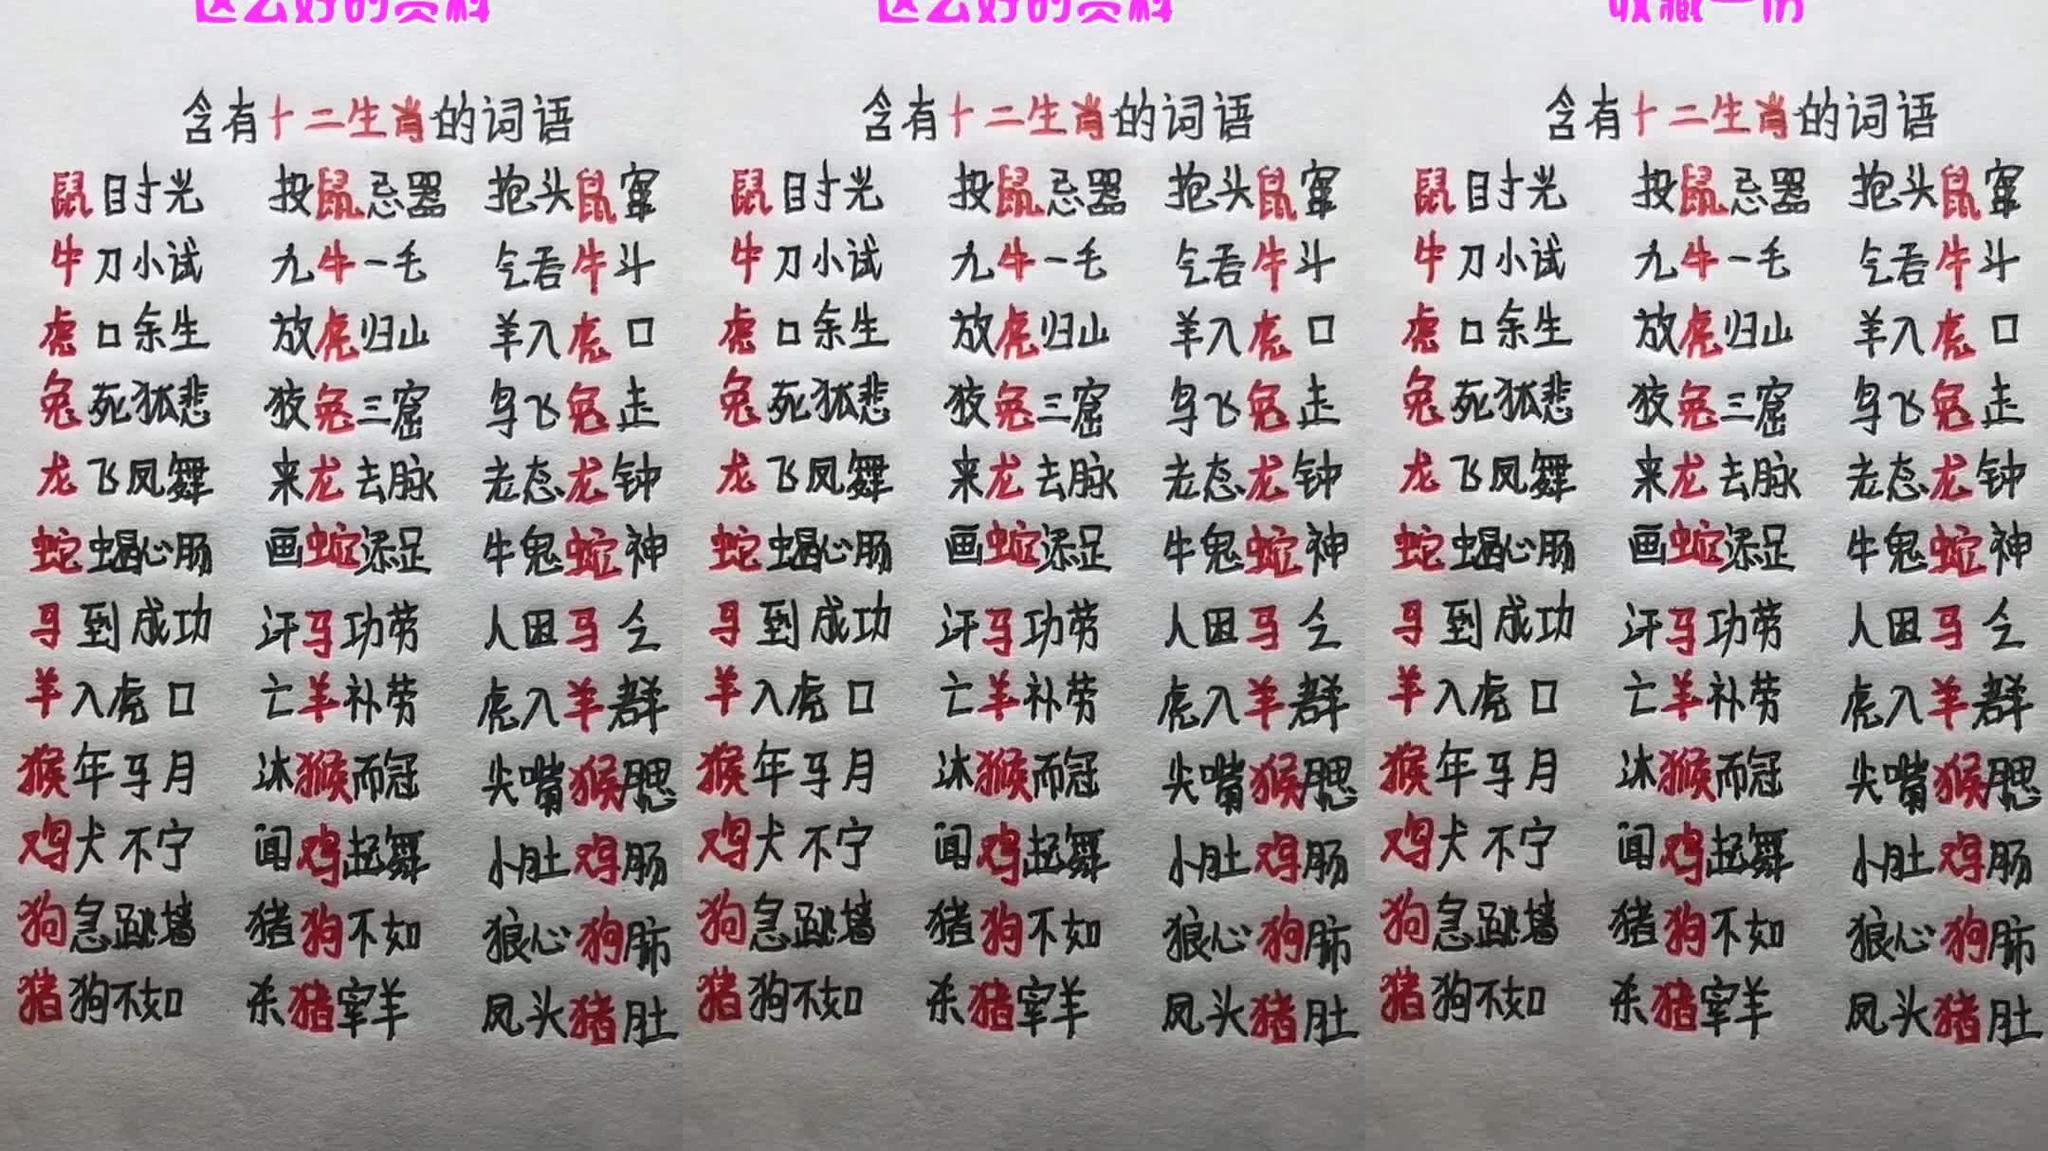 这么好的资料
含有十二生肖的词语
鼠目寸光 投鼠忌器 抱头鼠窜
牛刀小试 九牛一毛 气吞牛斗
虎口余生 放虎归山 羊入虎口
兔死狐悲 狡兔三窟 乌飞兔走
龙飞凤舞 来龙去脉 老态龙钟
蛇蝎心肠 画蛇添足 牛鬼蛇神
马到成功 汗马功劳 人困马乏
羊入虎口 亡羊补劳 虎入羊群
猴年马月 沐猴而冠 尖嘴猴腮
鸡犬不宁 闻鸡起舞 小肚鸡肠
狗急跳墙 猪狗不如 狼心狗肺
猪狗不如 杀猪宰羊 凤头猪肚
这么好的资料
含有十二生肖的词语
鼠目寸光 投鼠忌器 抱头鼠窜
牛刀小试 九牛一毛 气吞牛斗
虎口余生 放虎归山 羊入虎口
兔死狐悲 狡兔三窟 乌飞兔走
龙飞凤舞 来龙去脉 老态龙钟
蛇蝎心肠 画蛇添足 牛鬼蛇神
马到成功 汗马功劳 人困马乏
羊入虎口 亡羊补劳 虎入羊群
猴年马月 沐猴而冠 尖嘴猴腮
鸡犬不宁 闻鸡起舞 小肚鸡肠
狗急跳墙 猪狗不如 狼心狗肺
猪狗不如 杀猪宰羊 凤头猪肚
收藏一份
含有十二生肖的词语
鼠目寸光 投鼠忌器 抱头鼠窜
牛刀小试 九牛一毛 气吞牛斗
虎口余生 放虎归山 羊入虎口
兔死狐悲 狡兔三窟 乌飞兔走
龙飞凤舞 来龙去脉 老态龙钟
蛇蝎心肠 画蛇添足 牛鬼蛇神
马到成功 汗马功劳 人困马乏
羊入虎口 亡羊补劳 虎入羊群
猴年马月 沐猴而冠 尖嘴猴腮
鸡犬不宁 闻鸡起舞 小肚鸡肠
狗急跳墙 猪狗不如 狼心狗肺
猪狗不如 杀猪宰羊 凤头猪肚